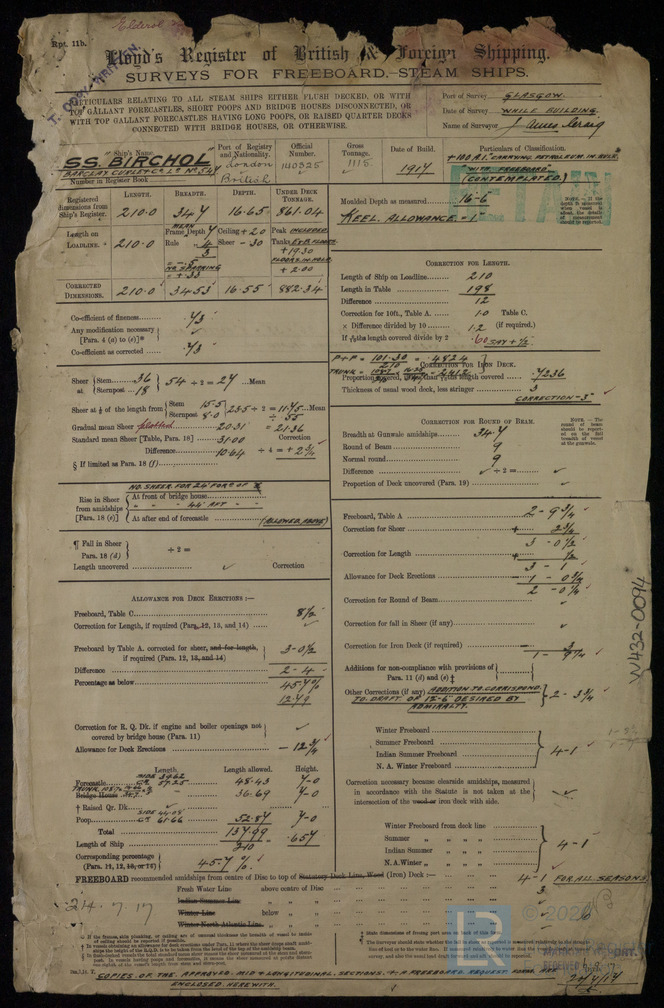 Rpt. 11b.
Lloyd's Register of British & Foreign Shipping.
SURVEYS FOR FREEBOARD.—STEAM SHIPS.
PARTICULARS RELATING TO ALL STEAM SHIPS EITHER FLUSH DECKED, OR WITH
TOP GALLANT FORECASTLES, SHORT POOPS AND BRIDGE HOUSES DISCONNECTED, OR
WITH TOP GALLANT FORECASTLES HAVING LONG POOPS, OR RAISED QUARTER DECKS
CONNECTED WITH BRIDGE HOUSES, OR OTHERWISE.
Port of Survey GLASGOW.
Date of Survey WHILE BUILDING.
Name of Surveyor
Ship's Name.
SS. "BIRCHOL"
BARCLAY CURLE & Co. Ld. No 547
Number in Register Book
Port of Registry and Nationality.
London
British
Official Number.
140325
Gross Tonnage.
1115
Date of Build.
1917
Particulars of Classification.
+100.A.1. "CARRYING PETROLEUM IN BULK
"WITH FREEBOARD"
(CONTEMPLATED)
LENGTH. BREADTH. DEPTH. UNDER DECK TONNAGE.
Registered dimensions from Ship's Register. 210.0 34.7 16.65 861.04
Length on LOADLINE. 210.0
Frame Depth 7
Rule
Ceiling + 20
Sheer - 30
Peak INCLUDED.
Tanks
+ 19.30
FLOORS IN HOLD
+ 2.00
NO SPARRING
CORRECTED DIMENSIONS. 210.0 34.53 16.55 882.34
Moulded Depth as measured 16-6
KEEL. ALLOWANCE - 1"
Co-efficient of fineness .73
Any modification necessary
[Para. 4 (a) to (e)]*
Co-efficient as corrected .73
CORRECTION FOR LENGTH.
Length of Ship on Loadline 210
Length in Table 198
Difference 12
Correction for 10ft., Table A. 1.0 Table C.
× Difference divided by 10 1.2 (if required.)
.60 SAY + 1/2
Sheer at Stem 36
Sternpost 18
54 ÷ 2 = 27 Mean
Sheer at 1/8 of the length from Stem 15.5
Sternpost 8.0
23.5 ÷ 2 = 11.75 Mean
÷ .55
Gradual mean Sheer plotted 20.31 = 21.36
Standard mean Sheer [Table, Para. 18] 31.00 Correction
Difference 10.64 ÷ 4 = + 2 3/4
§ If limited as Para. 18 (f)
CORRECTION FOR IRON DECK.
.7236
Thickness of usual wood deck, less stringer 3
CORRECTION - 3"
CORRECTION FOR ROUND OF BEAM.
Breadth at Gunwale amidships 34.7
Round of Beam 9
Normal round 9
Difference ÷ 2 =
Proportion of Deck uncovered (Para. 19)
Rise in Sheer from amidships
[Para. 18 (e)]
At front of bridge house
At after end of forecastle (ALLOWED ABOVE)
¶ Fall in Sheer
Para. 18 (d) ÷ 2 =
Length uncovered Correction
Freeboard, Table A 2 - 9 3/4
Correction for Sheer + 2 3/4
3 - 0 1/2
Correction for Length + 1/2
3 - 1
Allowance for Deck Erections - 1 - 0 3/4
2 - 0 1/4
Correction for Round of Beam
Correction for fall in Sheer (if any)
Correction for Iron Deck (if required) 3
1 - 9 1/4
Additions for non-compliance with provisions of
Para. 11 (d) and (e) ‡
Other Corrections (if any) ADDITION TO CORRESPOND. 2 - 3 3/4
TO DRAFT OF 12-6" DESIRED BY
ADMIRALTY.
ALLOWANCE FOR DECK ERECTIONS :—
Freeboard, Table C 8 1/2
Correction for Length, if required (Para. 12, 13, and 14)
Freeboard by Table A. corrected for sheer, and for length,
if required (Para. 12, 13, and 14) 3 - 0 1/2
Difference 2 - 4
Percentage as below 45.7 %
12.79
Correction for R. Q. Dk. if engine and boiler openings not
covered by bridge house (Para. 11)
Allowance for Deck Erections — 12 3/4
Length. Length allowed. Height.
Forecastle 57.25 48.43 7-0
Bridge House 36.69 7-0
† Raised Qr. Dk.
Poop 61.66 52.87 7-0
Total 137.99
Length of Ship 210 = .657
Corresponding percentage
(Para. 11, 12, 13, or 14) 45.7 %
Winter Freeboard
Summer Freeboard
Indian Summer Freeboard
N. A. Winter Freeboard
4-1
Correction necessary because clearside amidships, measured
in accordance with the Statute is not taken at the
intersection of the wood or iron deck with side.
Winter Freeboard from deck line
Summer " "
Indian Summer " "
N. A. Winter " "
4-1
FREEBOARD recommended amidships from centre of Disc to top of Statutory Deck Line, Wood (Iron) Deck :— 4-1 FOR ALL SEASONS
Fresh Water Line above centre of Disc 3
Indian Summer Line
Winter Line below
Winter North Atlantic Line
24.7.17
W432-0094
LR
© 202
COPIES OF THE APPROVED MID & LONGITUDINAL SECTIONS, & A FREEBOARD REQUEST FORM ARE
ENCLOSED HEREWITH.
24/7/17